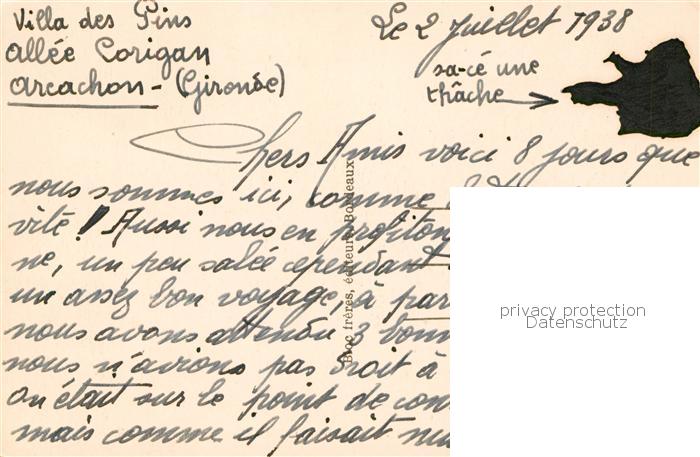 Villa des Pins
Allée Corigan
Arcachon - (Gironde)
Le 2 Juillet 1938
sa-cé une
thâche
Chers Amis voici 8 jours que
nous sommes ici, comme
vite! Aussi nous en profiton
ne, un peu salée cependant
un assez bon voyage, à par
nous avons attendu 3 bonn
nous n'avions pas droit à
on était sur le point de con
mais comme il faisait nu
Bloc frères, éditeurs, Bordeaux
privacy protection
Datenschutz